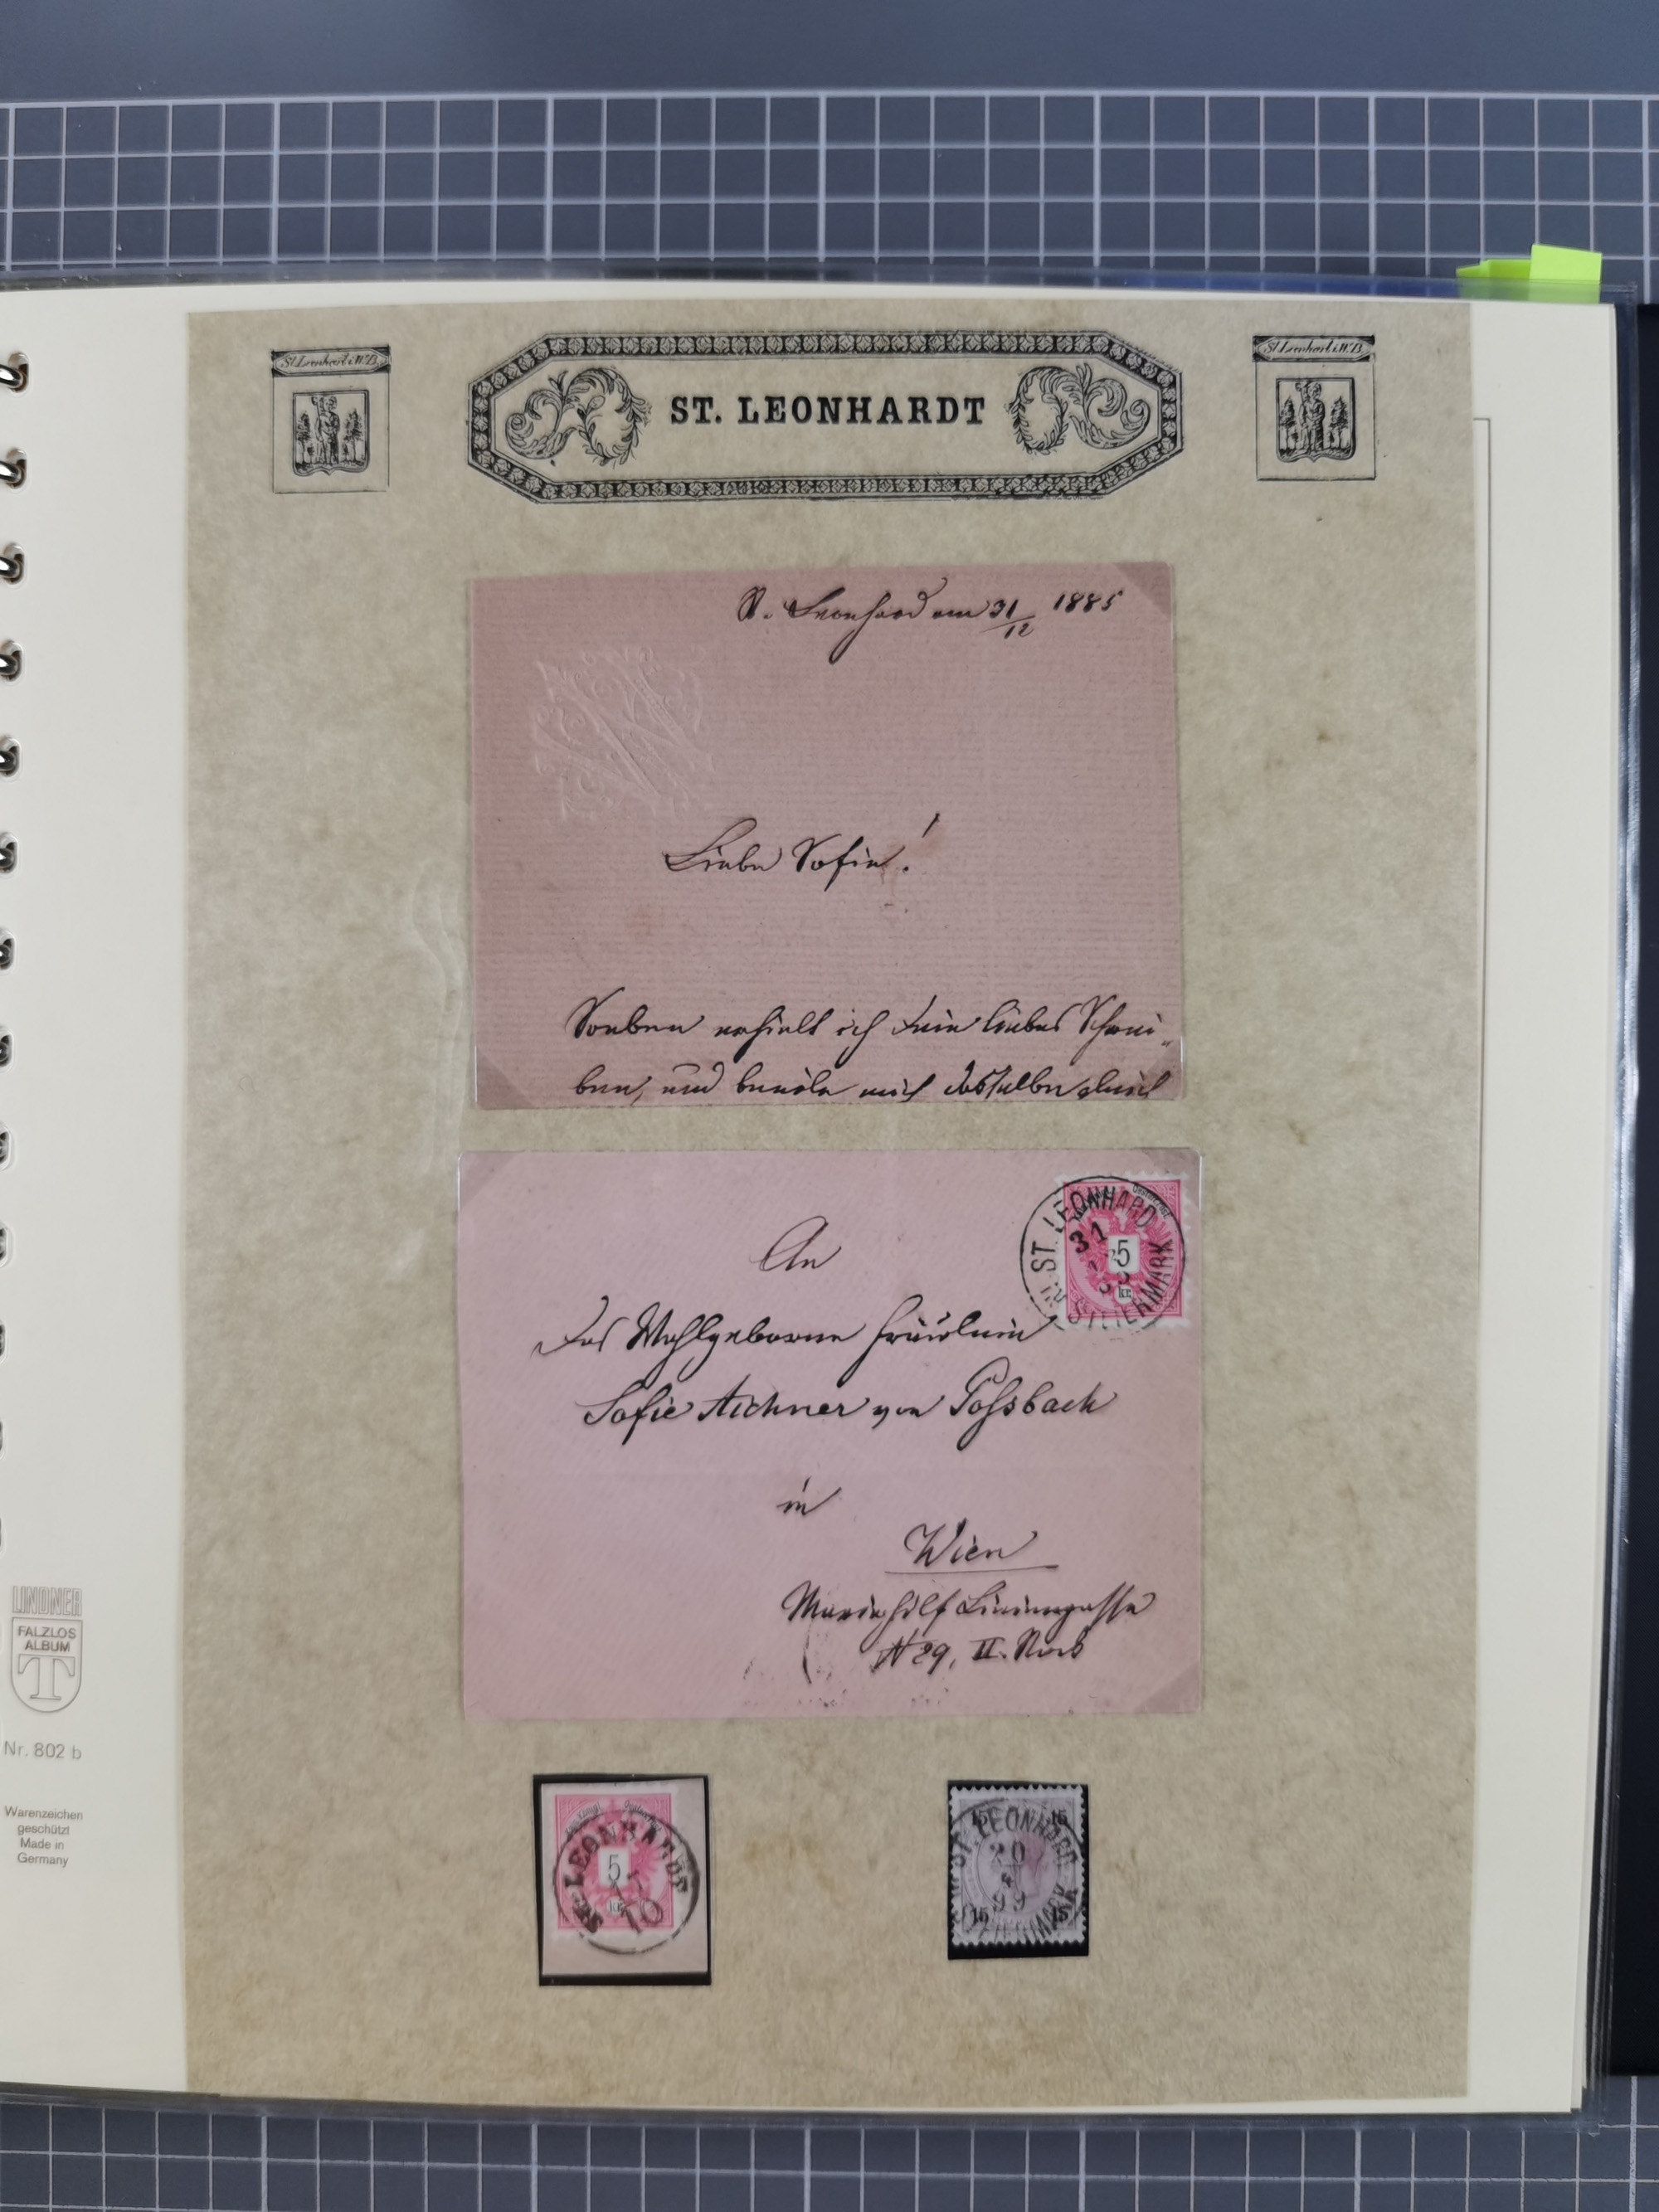 St. Leonhart i. W. B.
ST. LEONHARDT
St. Leonhart i. W. B.
St. Leonhard am 31/12 1885
Liebe Sofie!
Soeben erhielt ich Dein liebes Schrei„
ben, und beeile mich dasselbe gleich
An
das Wohlgeborne Fräulein
Sofie Aichner von Possbach
in
Wien
Mariahilf Liniengasse
N 29, II. Stock
ST. LEONHARD
31
STEIERMARK
5
kr.
ST. LEONHARDT
5
kr.
10
ST. LEONHARD
15
15
20
15
15
LINDNER
FALZLOS
ALBUM
T
Nr. 802 b
Warenzeichen
geschützt
Made in
Germany